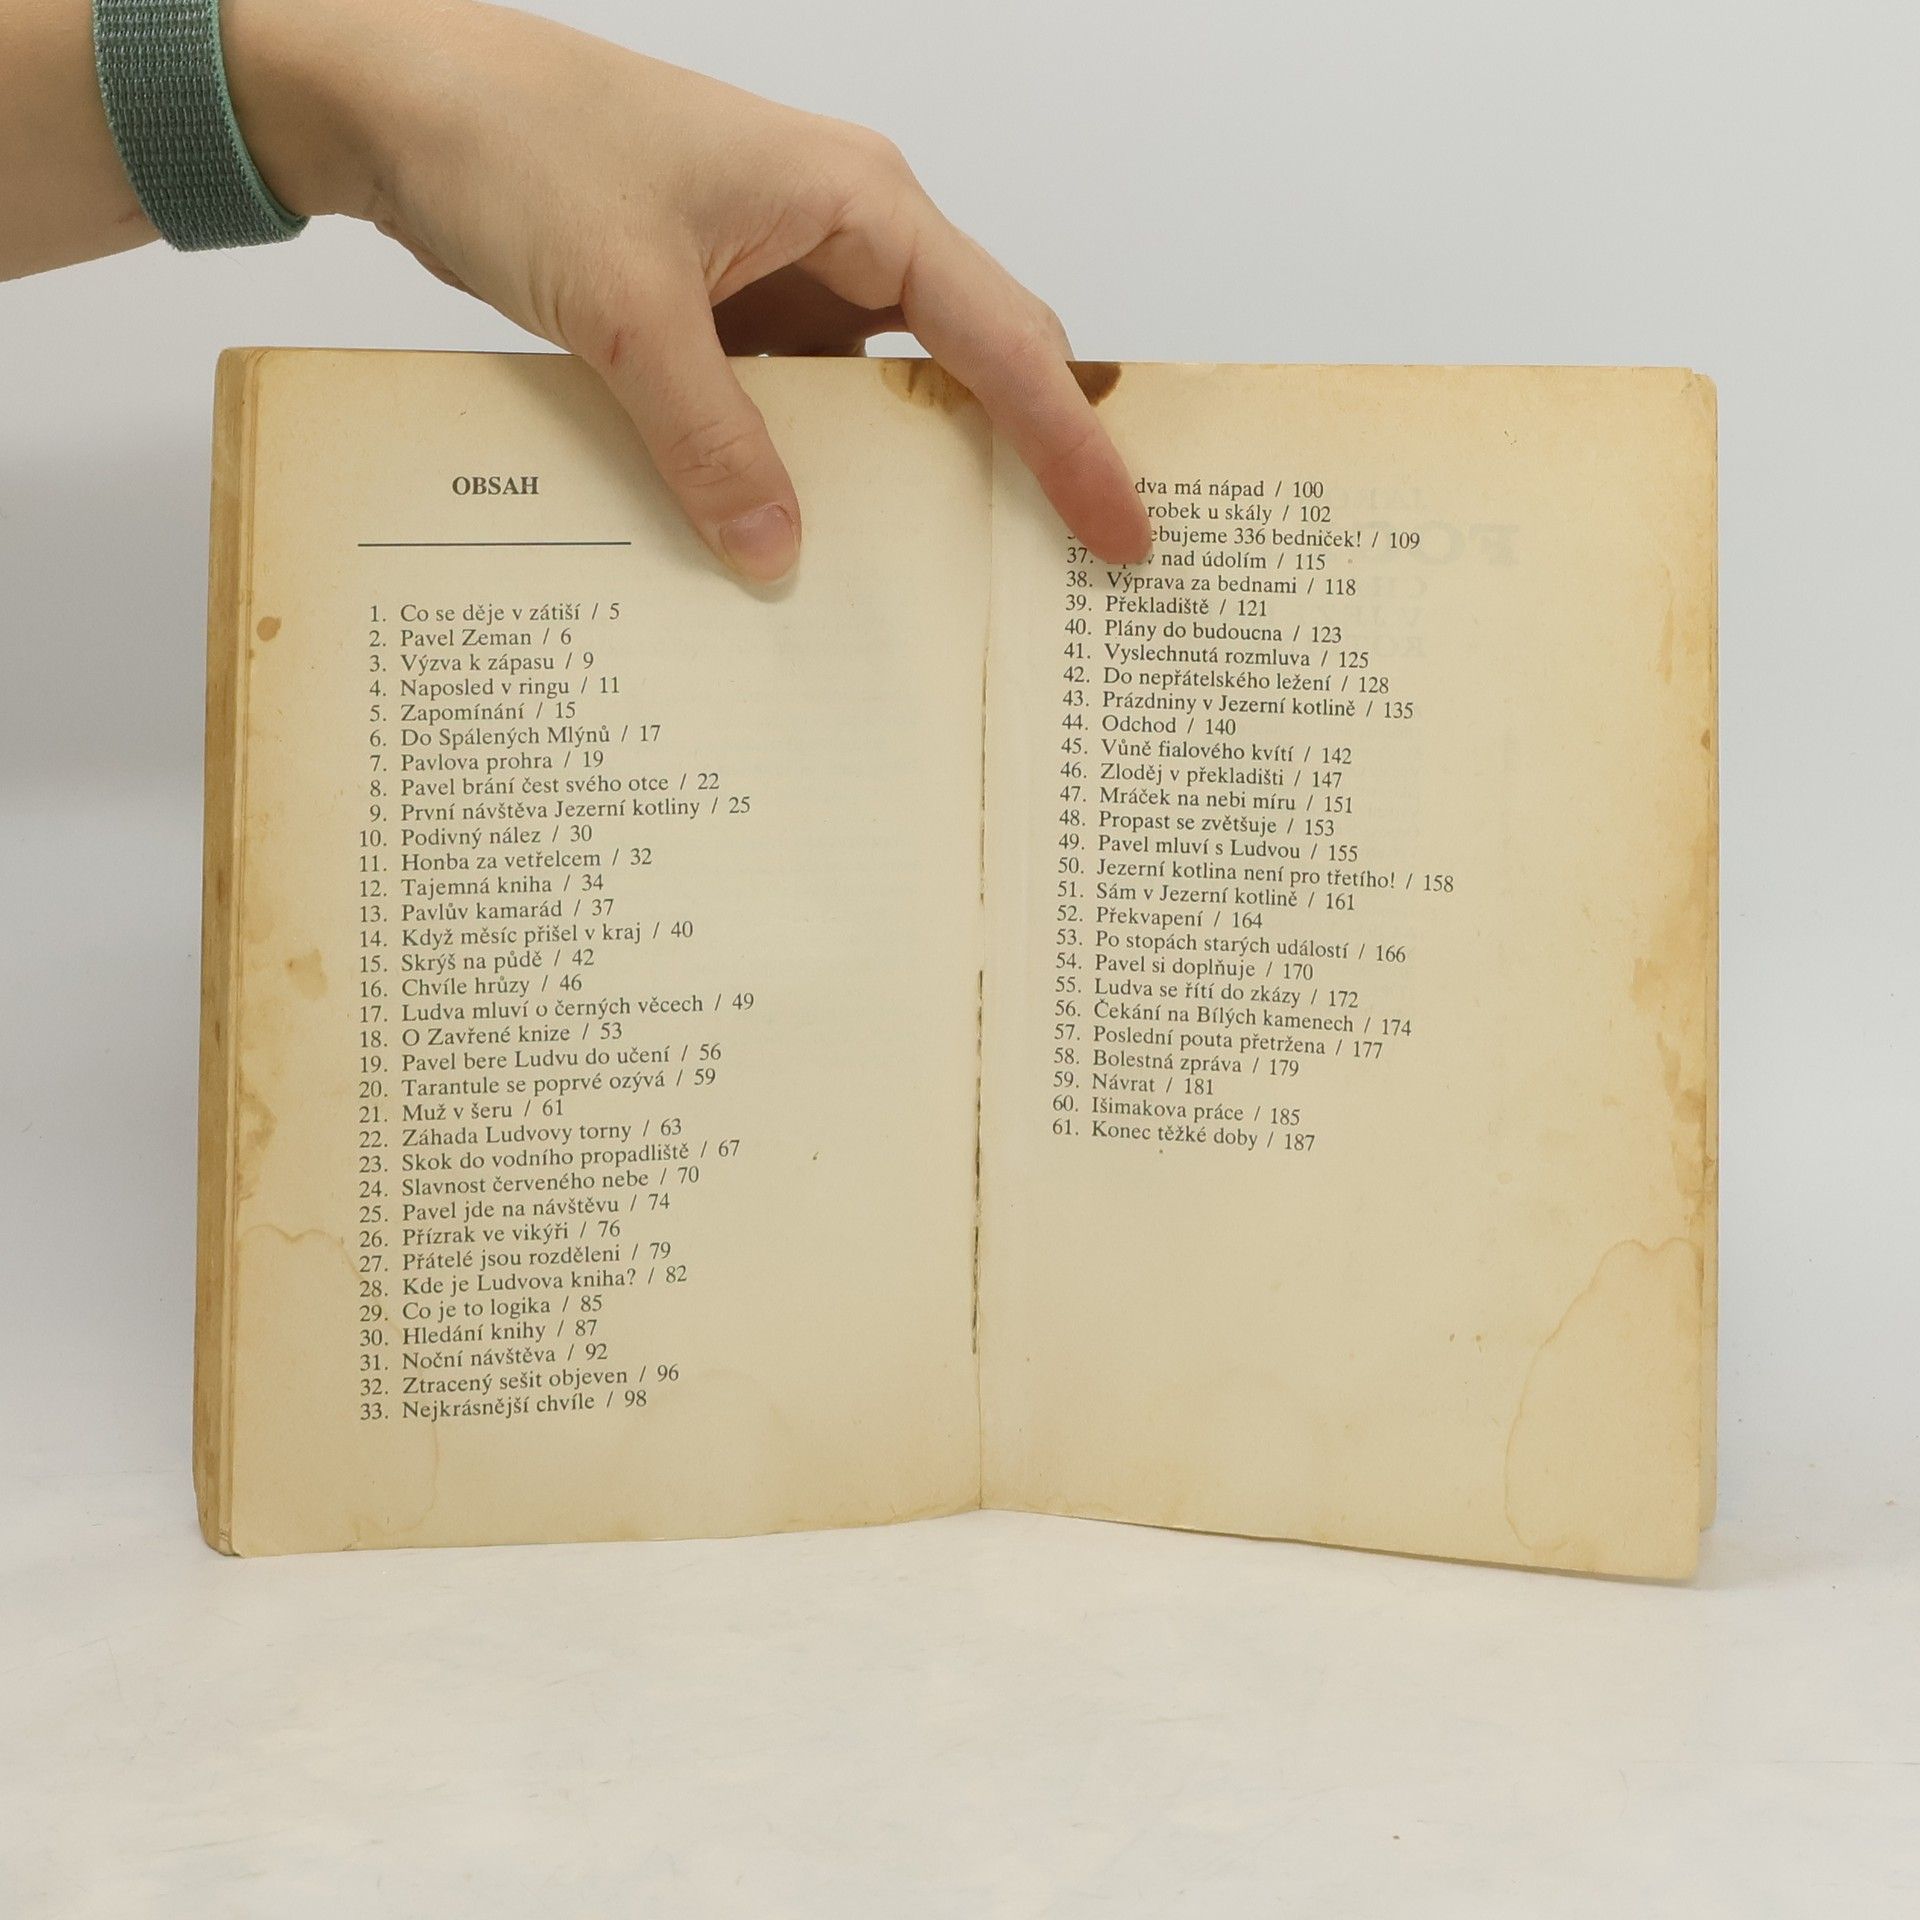 OBSAH
1. Co se děje v zátiší / 5
2. Pavel Zeman / 6
3. Výzva k zápasu / 9
4. Naposled v ringu / 11
5. Zapomínání / 15
6. Do Spálených Mlýnů / 17
7. Pavlova prohra / 19
8. Pavel brání čest svého otce / 22
9. První návštěva Jezerní kotliny / 25
10. Podivný nález / 30
11. Honba za vetřelcem / 32
12. Tajemná kniha / 34
13. Pavlův kamarád / 37
14. Když měsíc přišel v kraj / 40
15. Skrýš na půdě / 42
16. Chvíle hrůzy / 46
17. Ludva mluví o černých věcech / 49
18. O Zavřené knize / 53
19. Pavel bere Ludvu do učení / 56
20. Tarantule se poprvé ozývá / 59
21. Muž v šeru / 61
22. Záhada Ludvovy torny / 63
23. Skok do vodního propadliště / 67
24. Slavnost červeného nebe / 70
25. Pavel jde na návštěvu / 74
26. Přízrak ve vikýři / 76
27. Přátelé jsou rozděleni / 79
28. Kde je Ludvova kniha? / 82
29. Co je to logika / 85
30. Hledání knihy / 87
31. Noční návštěva / 92
32. Ztracený sešit objeven / 96
33. Nejkrásnější chvíle / 98
dva má nápad / 100
robek u skály / 102
ebujeme 336 bedniček! / 109
37. nad údolím / 115
38. Výprava za bednami / 118
39. Překladiště / 121
40. Plány do budoucna / 123
41. Vyslechnutá rozmluva / 125
42. Do nepřátelského ležení / 128
43. Prázdniny v Jezerní kotlině / 135
44. Odchod / 140
45. Vůně fialového kvítí / 142
46. Zloděj v překladišti / 147
47. Mráček na nebi míru / 151
48. Propast se zvětšuje / 153
49. Pavel mluví s Ludvou / 155
50. Jezerní kotlina není pro třetího! / 158
51. Sám v Jezerní kotlině / 161
52. Překvapení / 164
53. Po stopách starých událostí / 166
54. Pavel si doplňuje / 170
55. Ludva se řítí do zkázy / 172
56. Čekání na Bílých kamenech / 174
57. Poslední pouta přetržena / 177
58. Bolestná zpráva / 179
59. Návrat / 181
60. Išimakova práce / 185
61. Konec těžké doby / 187